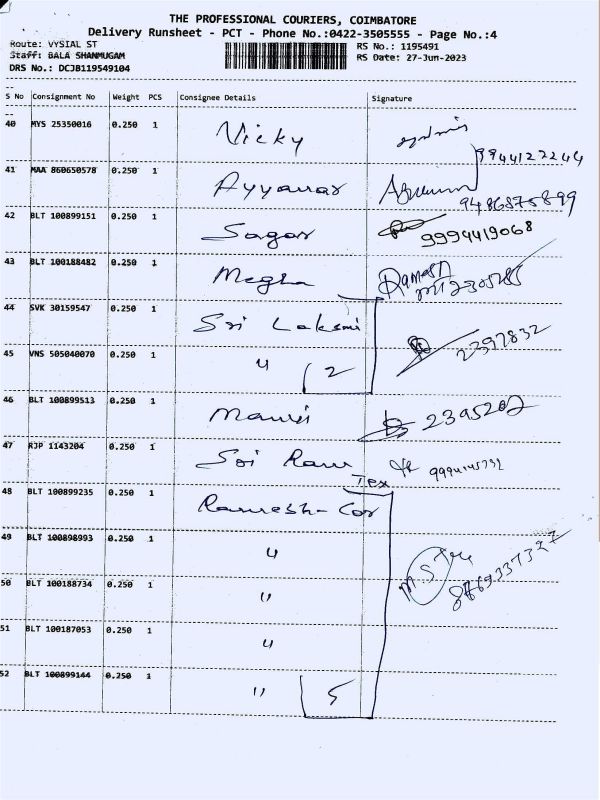 THE PROFESSIONAL COURIERS, COIMBATORE
Delivery Runsheet - PCT - Phone No.:0422-3505555 - Page No.:4
Route: VYSIAL ST RS No.: 1195491
Staff: BALA SHANMUGAM RS Date: 27-Jun-2023
DRS No.: DCJB119549104
S No Consignment No Weight PCS Consignee Details Signature
40 MYS 25350016 0.250 1 Vicky 9944127244
41 MAA 860650578 0.250 1 Ayyanar 9486875899
42 BLT 100899151 0.250 1 Sagar 9994419068
43 BLT 100188482 0.250 1 Megha Ramesh
44 SVK 30159547 0.250 1 Sri Laksmi 2397832
45 VNS 505040070 0.250 1 " 2
46 BLT 100899513 0.250 1 2395202
47 RJP 1143204 0.250 1 Sri Ram Tex
48 BLT 100899235 0.250 1 Ramesh Cor
49 BLT 100898993 0.250 1 "
50 BLT 100188734 0.250 1 "
51 BLT 100187053 0.250 1 "
52 BLT 100899144 0.250 1 " 5